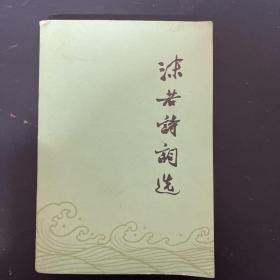 沫若詩詞选